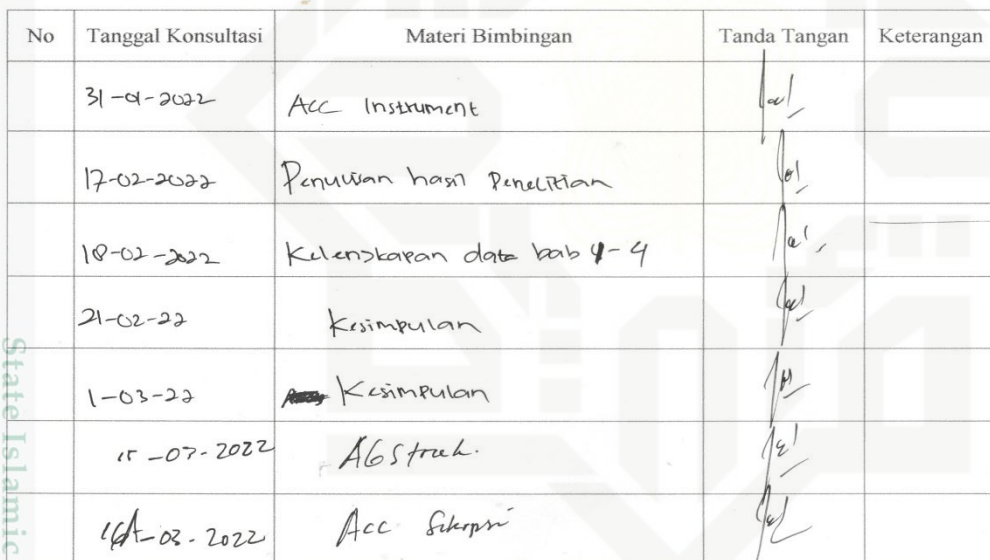 No Tanggal Konsultasi Materi Bimbingan Tanda Tangan Keterangan
31-01-2022 ACC Instrument
17-02-2022 Penulisan hasil Penelitian
18-02-2022 Kelengkapan data bab 1-4
21-02-22 Kesimpulan
1-03-22 Kesimpulan
15-03-2022 Abstrak.
-03-2022 Acc Skripsi
State Islamic